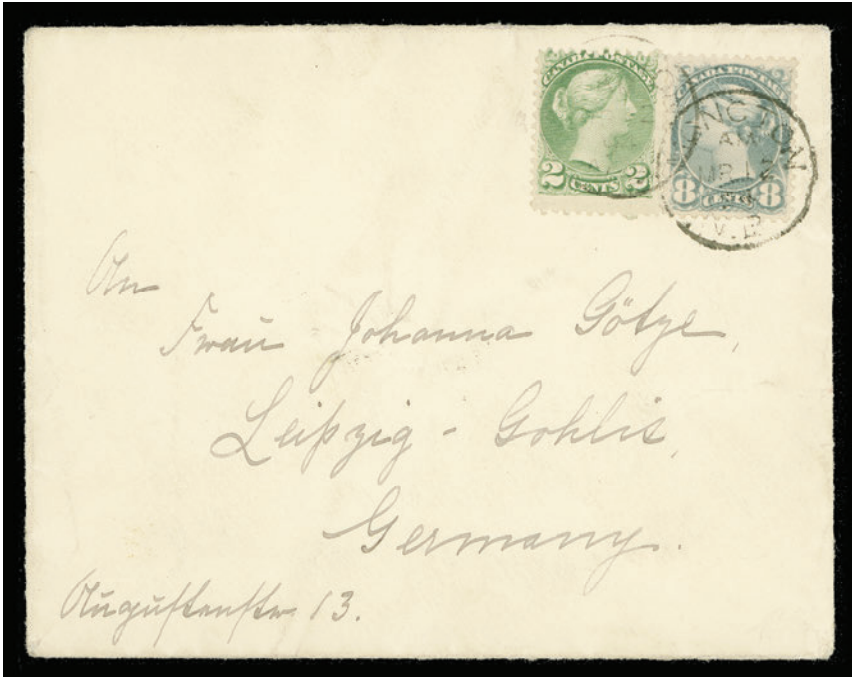 CANADA POSTAGE
2 CENTS 2
CANADA POSTAGE
8 CENTS 8
NCTON
AM
MR 14
An
Frau Johanna Götze,
Leipzig - Gohlis,
Germany.
Augustenstr 13.